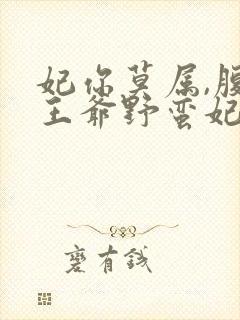 妃你莫属,腹
王爷野蛮妃
有钱